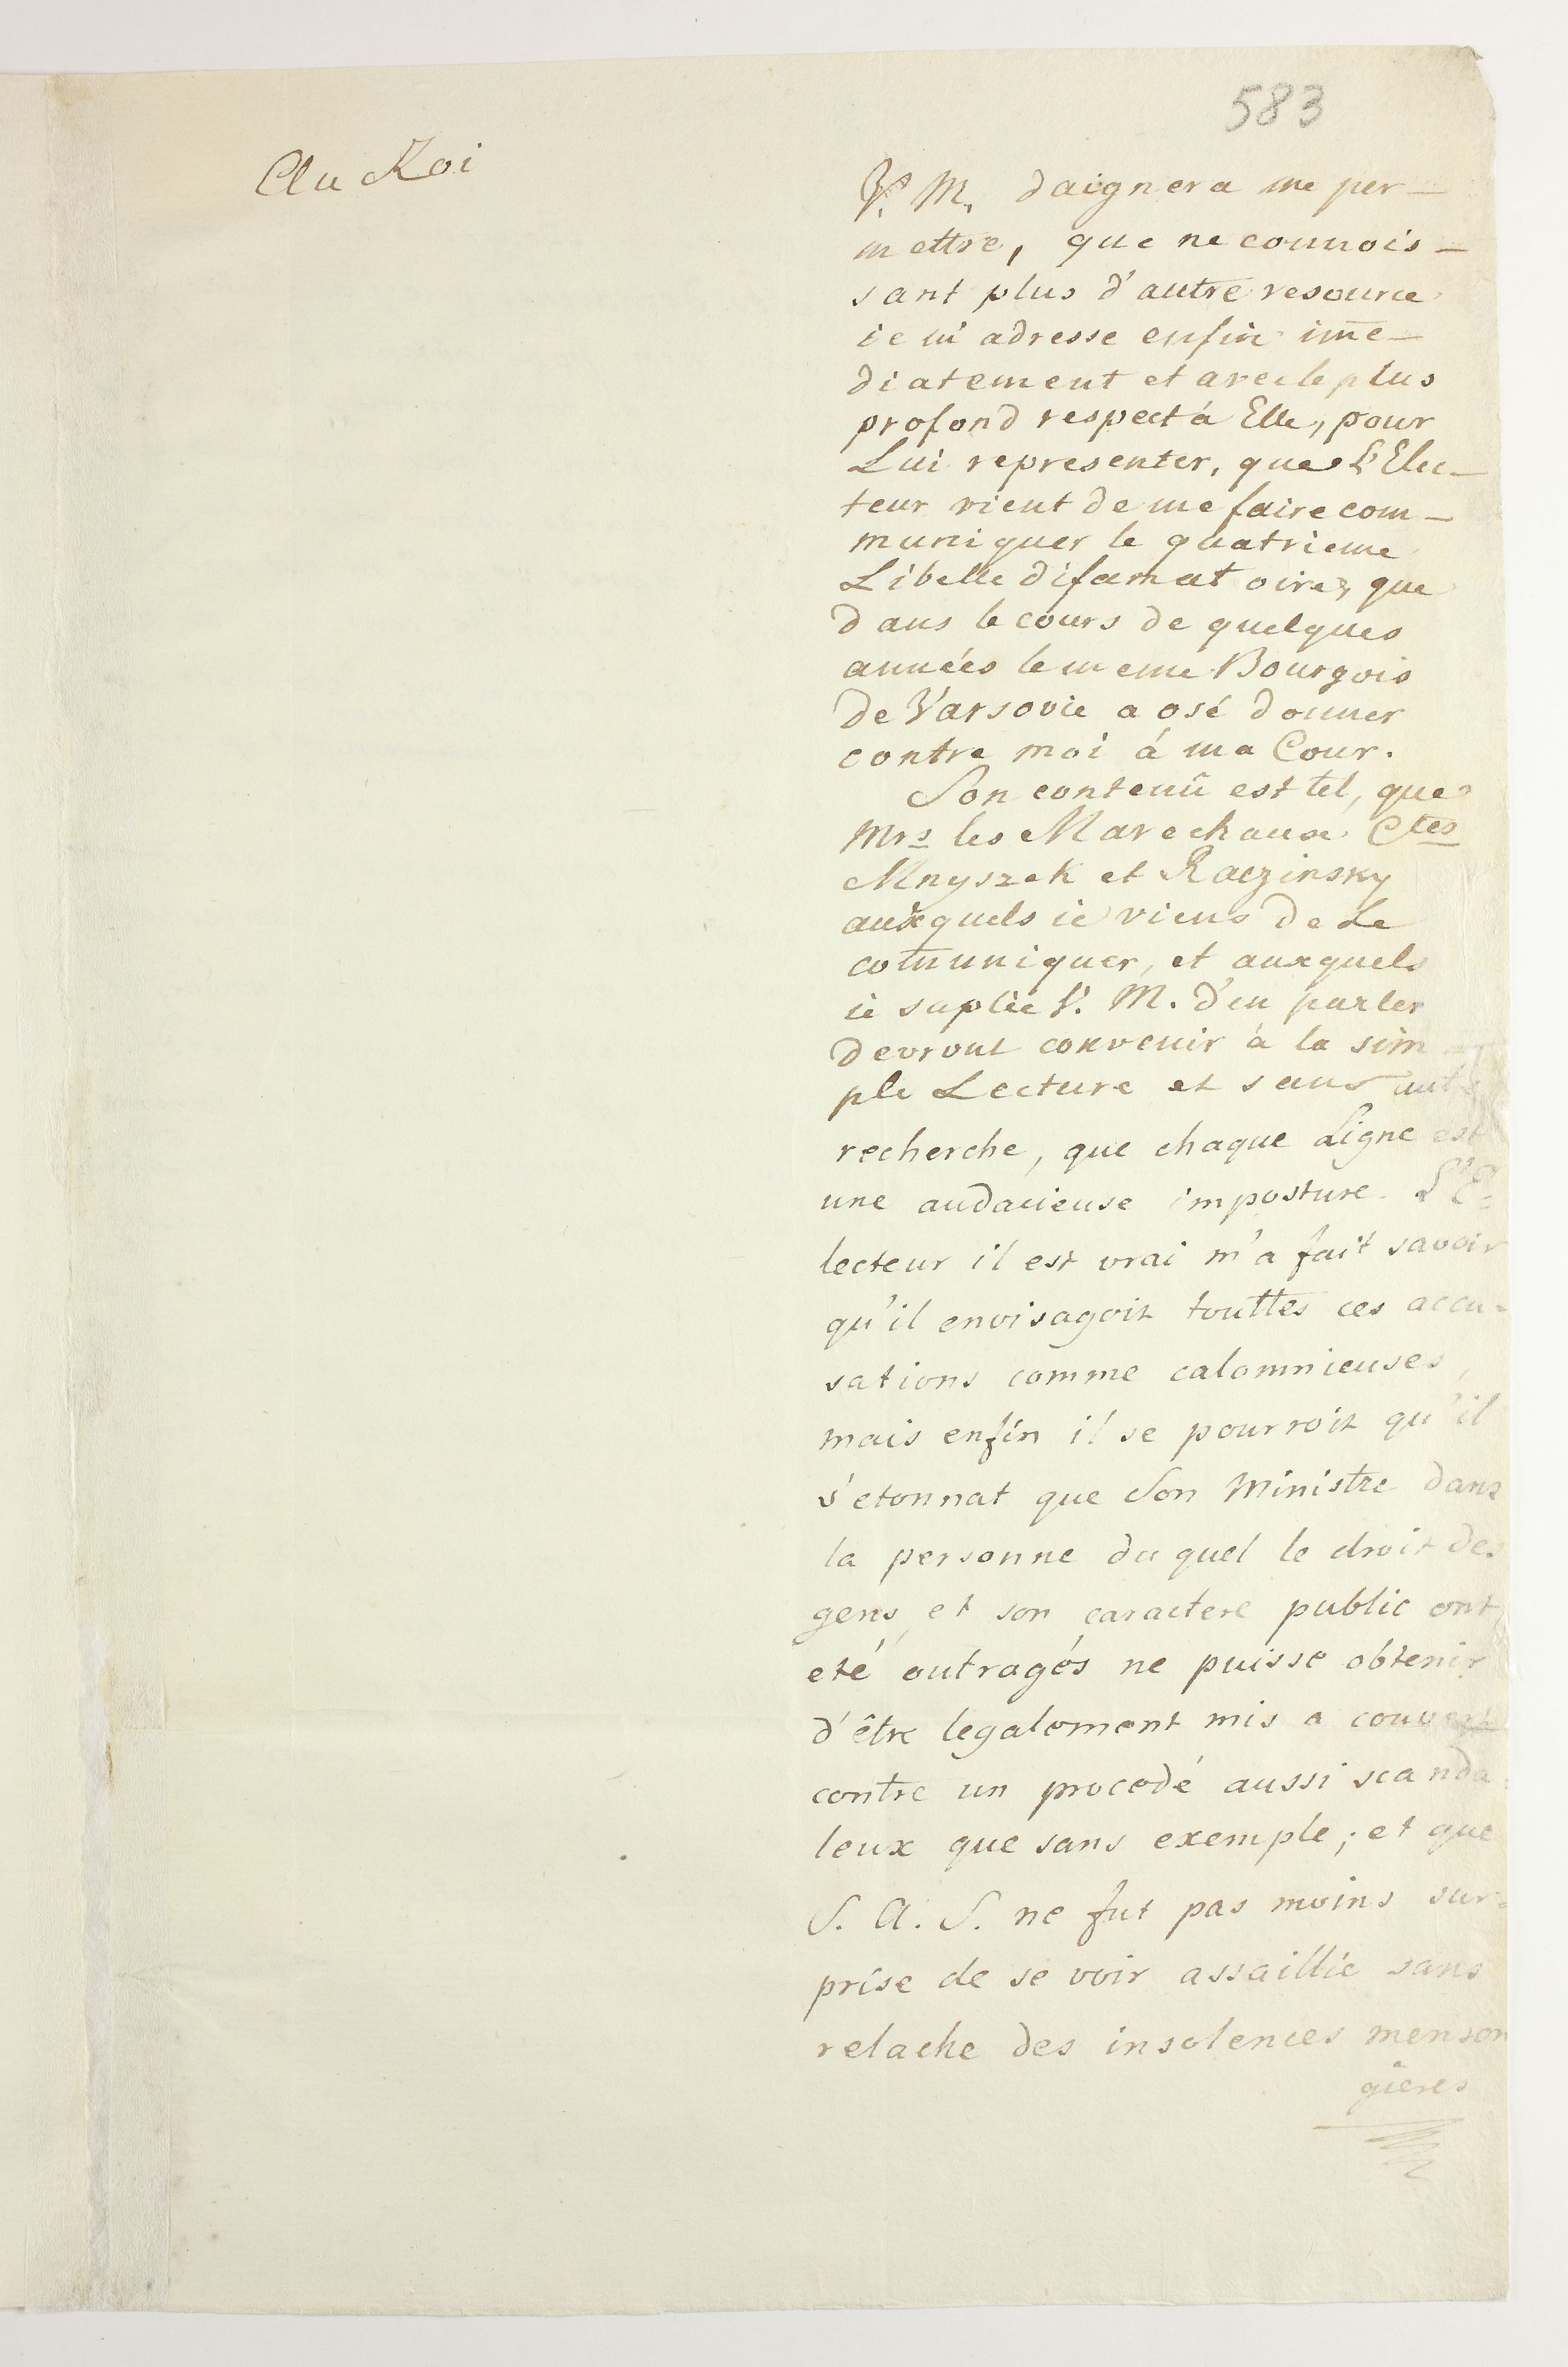 583
Au Roi
V. M. daignera me per-
mettre, que ne connois-
sant plus d'autre resource
ie m'adresse enfin im̅e-
diatement et avec le plus
profond respect á Elle, pour
Lui representer, que L'Elec-
teur vient de me faire com-
muniquer le quatrieme
Libelle difamatoire, que
dans le cours de quelques
années le meme Bourgois
de Varsovie a osé donner
contre moi á ma Cour.
Son contenû est tel, que
Mrs les Marechaux Ctes
Mnyszek et Raczinsky
auxquels ie viens de Le
com̅uniquer, et auxquels
ie suplie V. M. d'en parler
devront convenir à la sim-
ple Lecture et sans autre
recherche, que chaque Ligne est
une audacieuse imposture. L'E-
lecteur il est vrai m'a fait savoir
qu'il envisagoit touttes ces accu-
sations comme calomnieuses,
mais enfin il se pourroit qu'il
s'etonnat que Son Ministre dans
la personne du quel le droit des
gens, et son caractere public ont
eté outragés ne puisse obtenir
d'être legalement mis a couvert
contre un procedé aussi scanda-
leux que sans exemple; et que
S. A. S. ne fut pas moins sur-
prise de se voir assaillie sans
relache des insolences menson
gieres